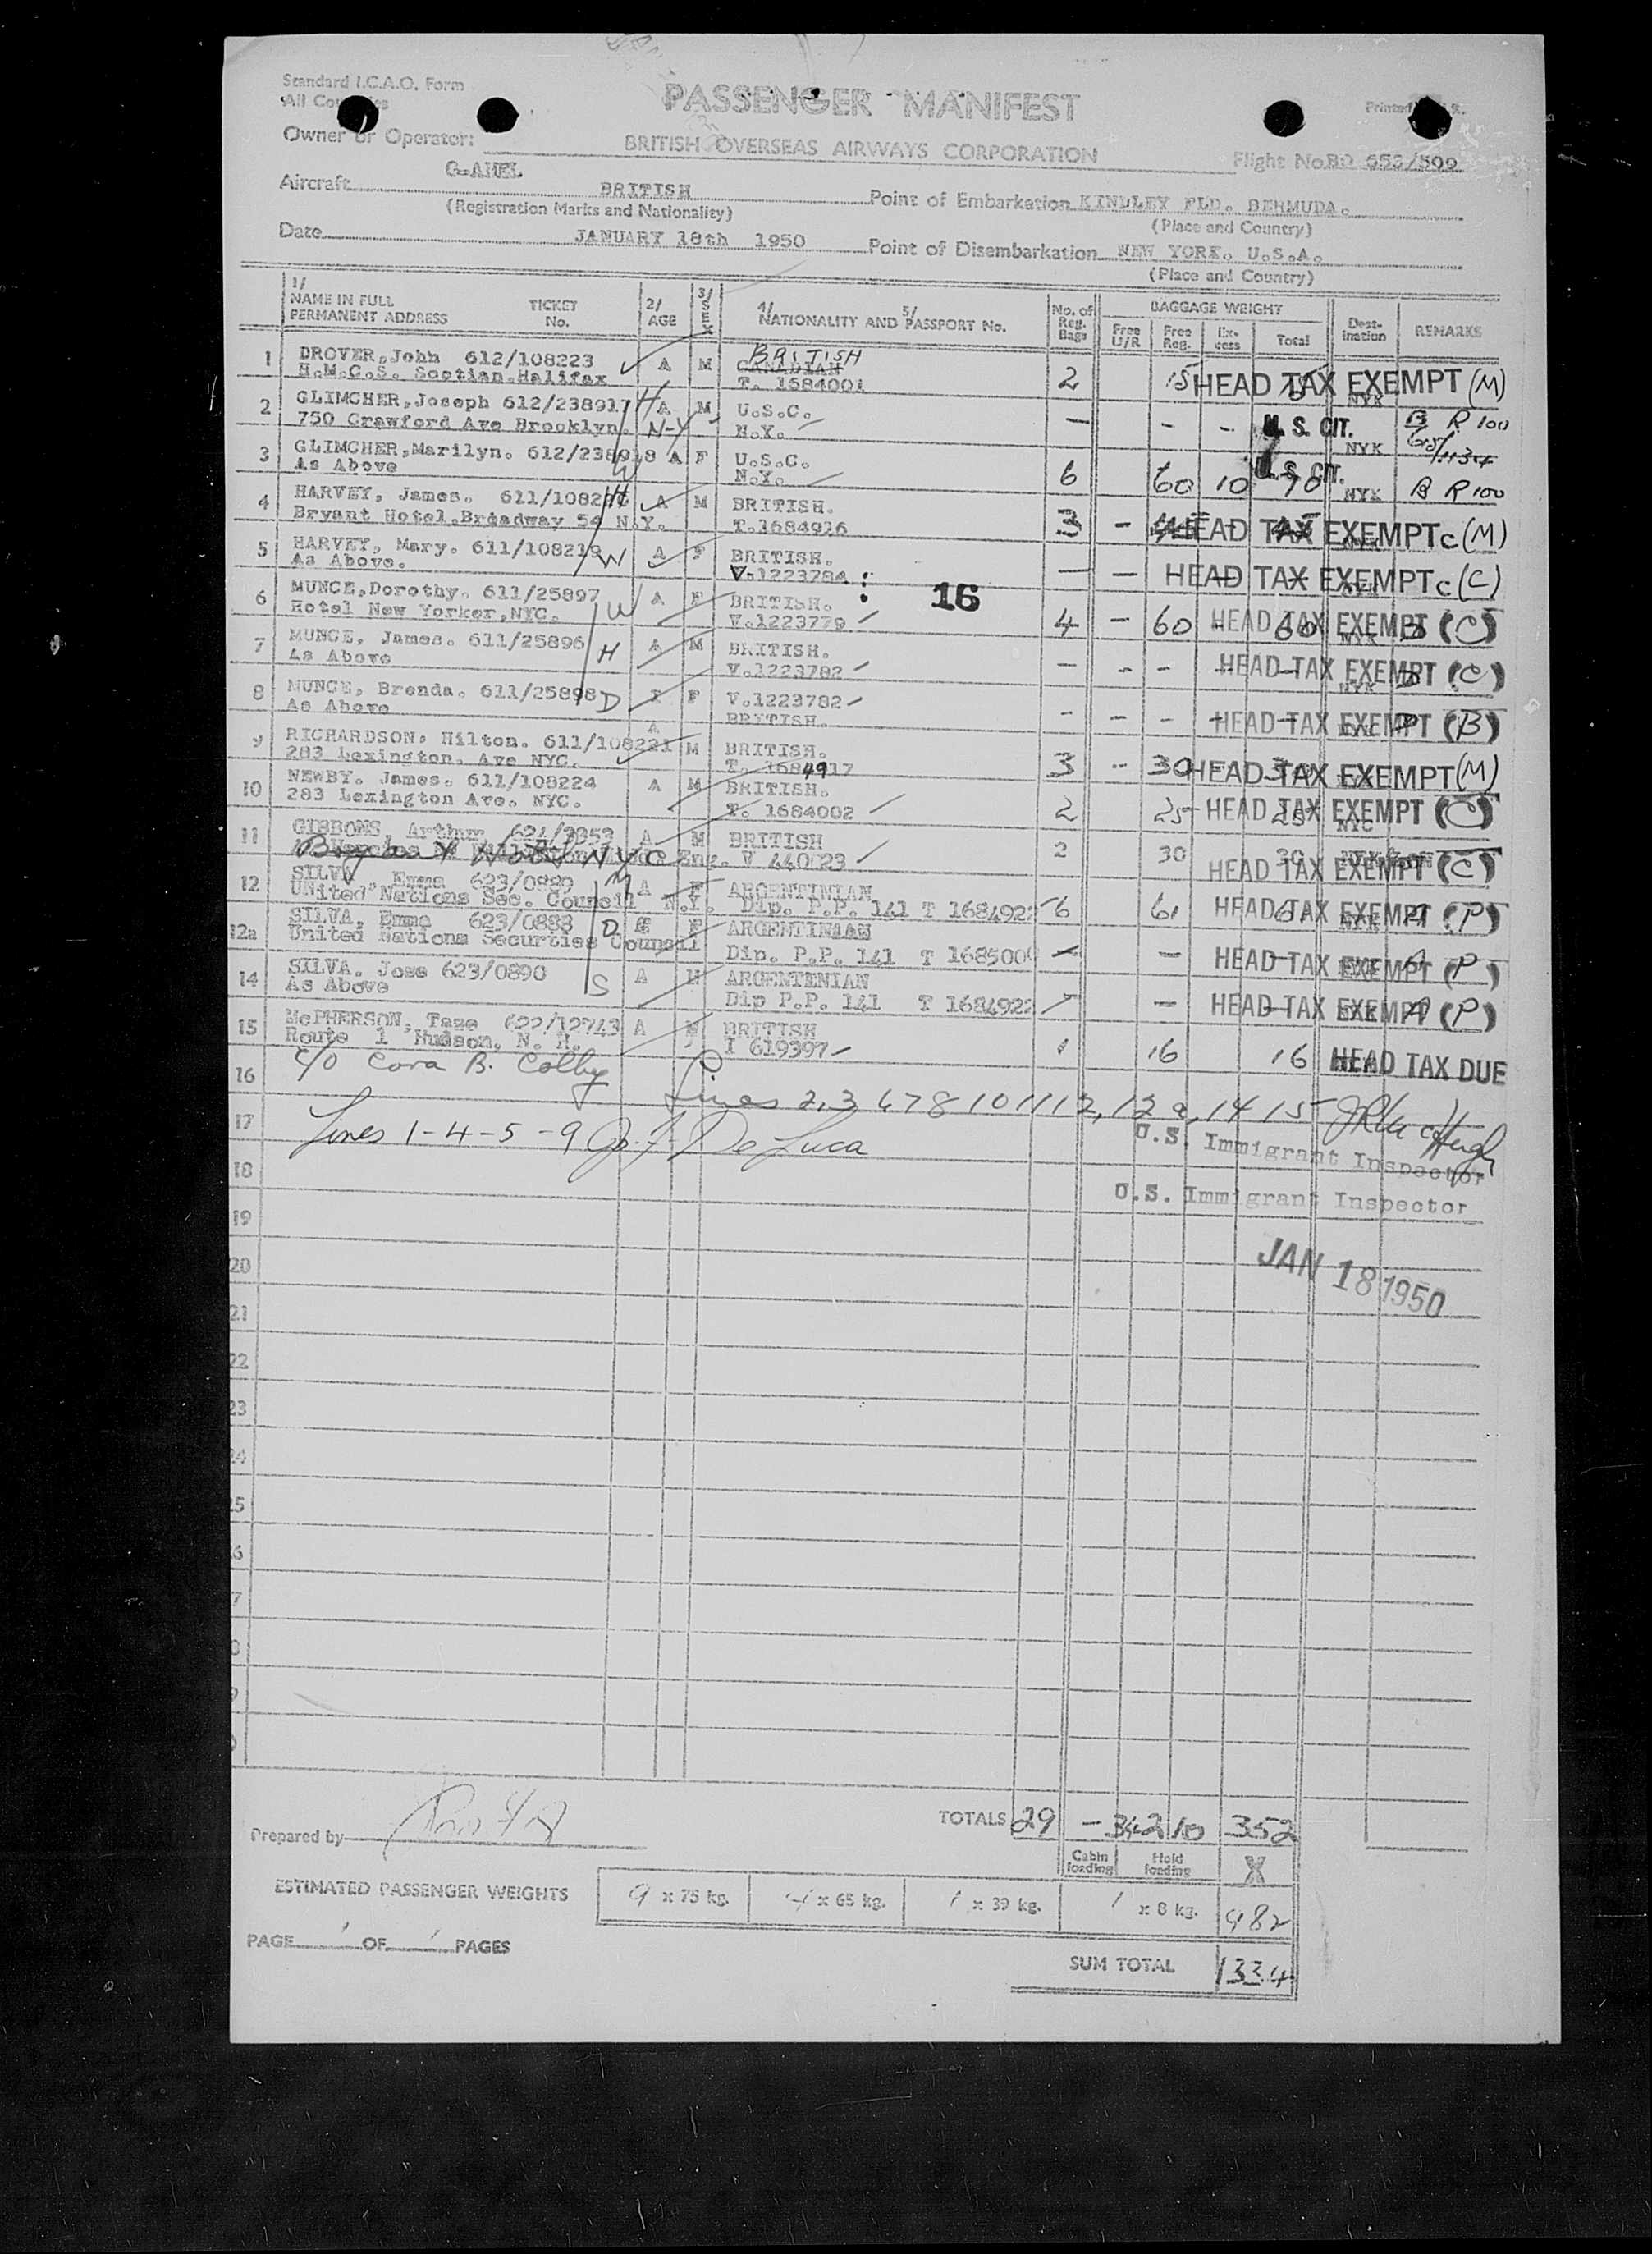 Standard I.C.A.O. Form
All
PASSENGER MANIFEST
Printed
Owner or Operator: BRITISH OVERSEAS AIRWAYS CORPORATION
Flight No. 653/509
Aircraft G-AHEL BRITISH
(Registration Marks and Nationality)
Point of Embarkation KINDLEY FLD. BERMUDA.
(Place and Country)
Date JANUARY 18th 1950
Point of Disembarkation NEW YORK. U.S.A.
(Place and Country)
1/ NAME IN FULL PERMANENT ADDRESS TICKET No. 2/ AGE 3/ SEX 4/ NATIONALITY AND 5/ PASSPORT No. No. of Reg. Bags BAGGAGE WEIGHT Free U/R Free Reg. Ex-cess Total Dest-ination REMARKS
1 DROVER, John 612/108223 A M BRITISH CANADIAN 2 15 HEAD TAX EXEMPT (M)
H.M.C.S. Scotian. Halifax T. 1684001
2 GLIMCHER, Joseph 612/238917 H A M U.S.C. — - - U. S. CIT. B R 100
750 Crawford Ave Brooklyn. N-Y N.Y. NYK
3 GLIMCHER, Marilyn. 612/238918 A F U.S.C. 6 60 10 70 U. S. CIT. B R 100
As Above W N.Y. NYK
4 HARVEY, James. H A M BRITISH. 3 - HEAD TAX EXEMPT c (M)
Bryant Hotel. Broadway 54 N.Y. T.1684916
5 HARVEY, Mary. 611/108219 W A F BRITISH. — — HEAD TAX EXEMPT c (C)
As Above. V.1223784
16
6 MUNCE, Dorothy. 611/25897 W A F BRITISH. 4 - 60 60 HEAD TAX EXEMPT (C)
Hotel New Yorker, NYC. V.1223779 NYK
7 MUNCE, James. 611/25896 H A M BRITISH. — - - HEAD TAX EXEMPT (C)
As Above V.1223782 NYK
8 MUNCE, Brenda. 611/25898 D I F V.1223782 - - - HEAD TAX EXEMPT (B)
As Above BRITISH.
9 RICHARDSON, Hilton. 611/108221 A M BRITISH. 3 - 30 HEAD TAX EXEMPT (M)
283 Lexington. Ave NYC. T. 1684917
10 NEWBY. James. 611/108224 A M BRITISH. 2 25 HEAD TAX EXEMPT (C)
283 Lexington Ave. NYC. T. 1684002 NYC
11 GIBBONS, Arthur 624/3353 A M BRITISH 2 30 30 HEAD TAX EXEMPT (C)
NYC Eng. V 440823
12 SILVA Emma 623/0889 M A F ARGENTINIAN 6 61 HEAD TAX EXEMPT (P)
United Nations Sec. Council N.Y. Dip. P.P. 141 T 1684922
12a SILVA, Emma 623/0888 D F ARGENTINIAN — — HEAD TAX EXEMPT (P)
United Nations Securties Council Dip. P.P. 141 T 168500
14 SILVA. Jose 623/0890 S A M ARGENTENIAN — HEAD TAX EXEMPT (P)
As Above Dip P.P. 141 T 1684922
15 McPHERSON, Tase 622/12743 A BRITISH 1 16 16 HEAD TAX DUE
Route 1 Hudson, N. H. I 619397
16 c/o Cora B. Colby
Lines 2,3 6 7 8 10 11 12, 12a, 14 15
17 Lines 1-4-5-9 De Luca
U.S. Immigrant Inspector
18
U.S. Immigrant Inspector
19
20
JAN 18 1950
21
22
23
24
Prepared by
TOTALS 29 - 342 10 352
Cabin loading Hold loading X
ESTIMATED PASSENGER WEIGHTS 9 x 75 kg. 4 x 65 kg. 1 x 39 kg. 1 x 8 kg. 982
PAGE 1 OF 1 PAGES
SUM TOTAL 1334